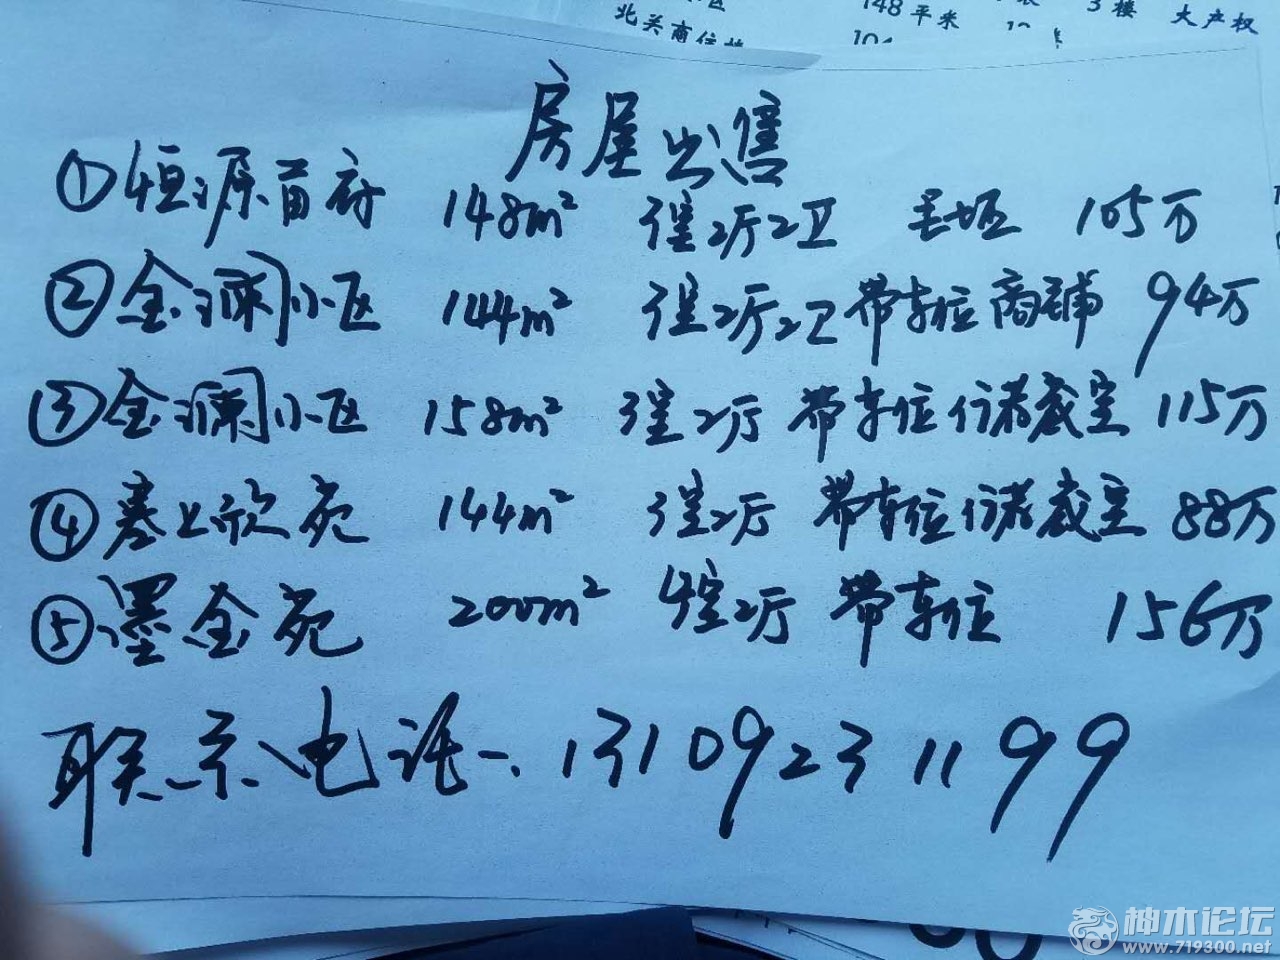 北关商住楼
148平米
3楼
大产权
房屋出售
①恒源首府 148m² 3室2厅2卫 毛坯 105万
②金澜小区 144m² 3室2厅2卫 带车位商铺 94万
③金澜小区 158m² 3室2厅 带车位储藏室 115万
④塞上欣苑 144m² 3室2厅 带车位储藏室 88万
⑤墨金苑 200m² 4室2厅 带车位 156万
联系电话 13109231199
神木论坛
www.719300.net